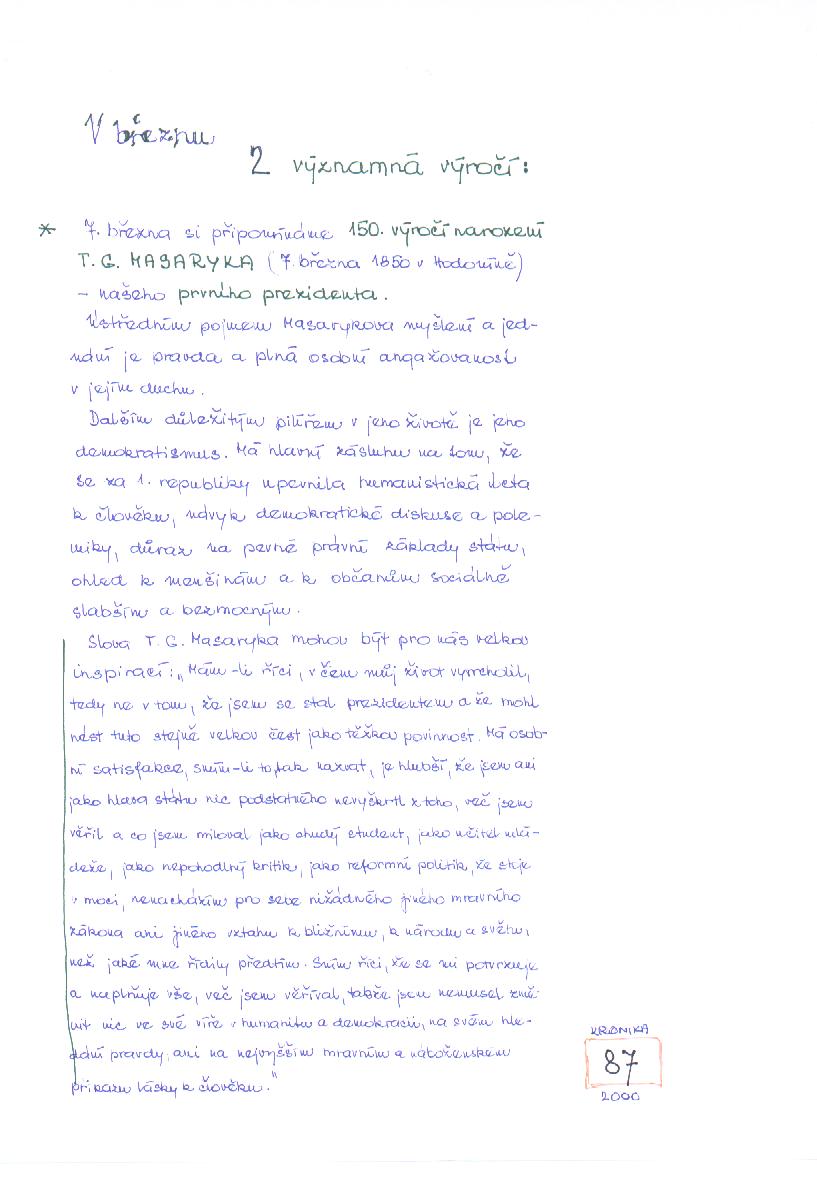 V březnu
2 významná výročí:
* 7. března si připomínáme 150. výročí narození
T. G. MASARYKA (7. března 1850 v Hodoníně)
– našeho prvního prezidenta.
Ústředním pojmem Masarykova myšlení a jed-
nání je pravda a plná osobní angažovanost
v jejím duchu.
Dalším důležitým pilířem v jeho životě je jeho
demokratismus. Má hlavní zásluhu na tom, že
se za 1. republiky upevnila humanistická úcta
k člověku, návyk demokratické diskuse a pole-
miky, důraz na pevné právní základy státu,
ohled k menšinám a k občanům sociálně
slabším a bezmocným.
Slova T. G. Masaryka mohou být pro nás velkou
inspirací: „Mám-li říci, v čem můj život vyvrcholil,
tedy ne v tom, že jsem se stal prezidentem a že mohl
nést tuto stejně velkou čest jako těžkou povinnost. Má osob-
ní satisfakce, smím-li to tak nazvat, je hlubší, že jsem ani
jako hlava státu nic podstatného nevyškrtl z toho, več jsem
věřil a co jsem miloval jako chudý student, jako učitel mlá-
deže, jako nepohodlný kritik, jako reformní politik, že stoje
v moci, nenacházím pro sebe nižádného jiného mravního
zákona ani jiného vztahu k bližnímu, k národu a světu,
než jaké mne řídily předtím. Smím říci, že se mi potvrzuje
a naplňuje vše, več jsem věříval, takže jsem nemusel změ-
nit nic ve své víře v humanitu a demokracii, na svém hle-
dání pravdy, ani na nejvyšším mravním a náboženském
příkazu lásky k člověku."
KRONIKA
87
2000